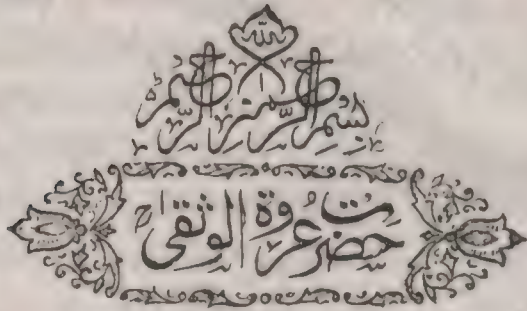 بسم الله الرحمن الرحیم
حضرت عروة الوثقی